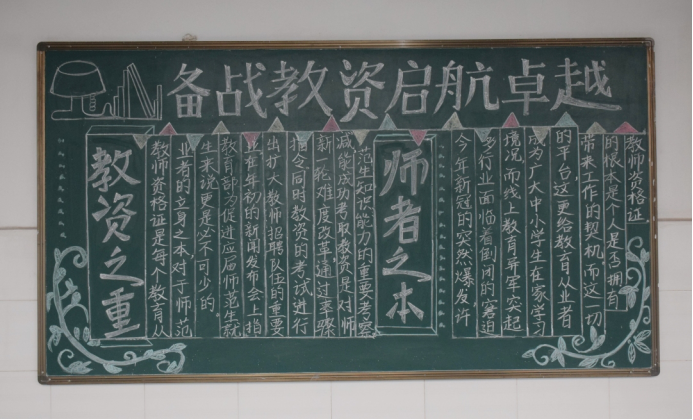 备战教资启航卓越
教资之重
教师资格证是每个教育从
业者的立身之本,对于师范
生来说更是必不可少的.
教育部为促进应届师范生就
业在年初的新闻发布会上指
出扩大教师招聘队伍的重要
指令同时教资的考试进行
新一轮难度改革,通过率骤
减能成功考取教资是对师
范生知识能力的重要考察
师者之本
今年新冠的突然爆发许
多行业面临着倒闭的窘迫
境况,而线上教育异军突起
成为广大中小学生在家学习
的平台,这更给教育从业者
带来工作的契机,而这一切
的根本是个人是否拥有
教师资格证